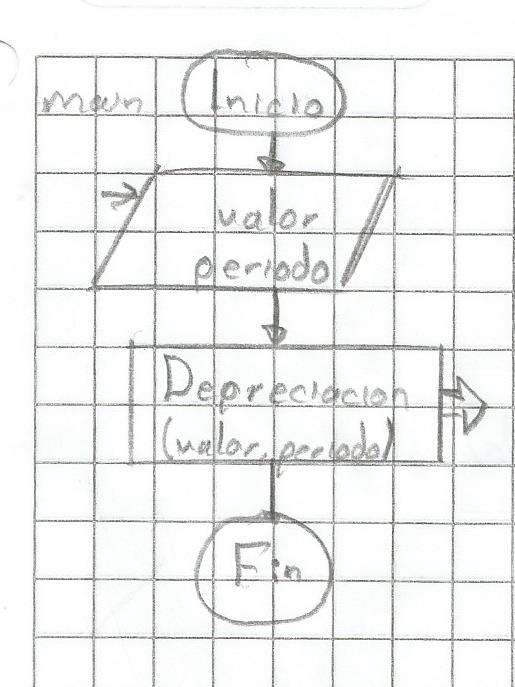 main
Inicio
valor
periodo
Depreciacion
(valor, periodo)
Fin